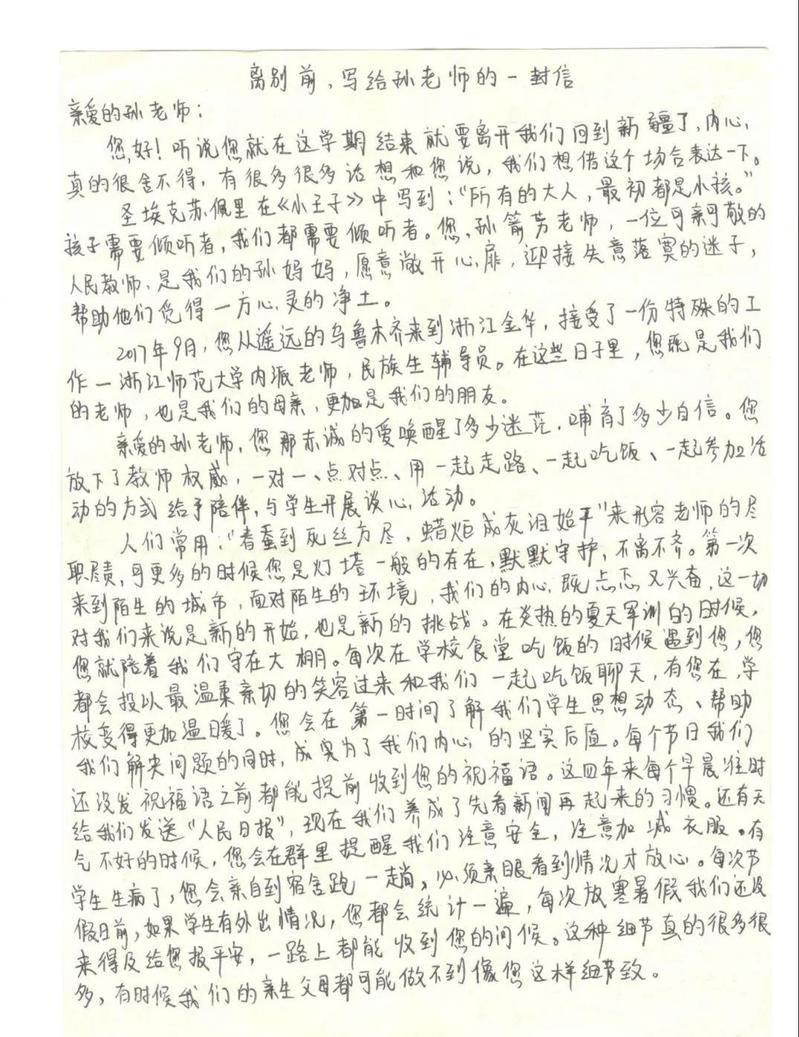 离别前,写给孙老师的一封信
亲爱的孙老师:
您,好!听说您就在这学期结束就要离开我们回到新疆了,内心,
真的很舍不得,有很多很多话想和您说,我们想借这个场合表达一下。
圣埃克苏佩里在《小王子》中写到:"所有的大人,最初都是小孩。"
孩子需要倾听者,我们都需要倾听者。您、孙箭芳老师,一位可亲可敬的
人民教师,是我们的孙妈妈,愿意敞开心扉,迎接失意落寞的迷子,
帮助他们觅得一方心灵的净土。
2017年9月,您从遥远的乌鲁木齐来到浙江金华,接受了一份特殊的工
作—浙江师范大学内派老师,民族生辅导员。在这些日子里,您既是我们
的老师,也是我们的母亲,更加是我们的朋友。
亲爱的孙老师,您那赤诚的爱唤醒了多少迷茫,哺育了多少自信。您
放下了教师权威,一对一、点对点、用一起走路、一起吃饭、一起参加活
动的方式给予陪伴,与学生开展谈心活动。
人们常用:"春蚕到死丝方尽,蜡炬成灰泪始干"来形容老师的尽
职尽责,可更多的时候您是灯塔一般的存在,默默守护,不离不弃。第一次
来到陌生的城市,面对陌生的环境,我们的内心,既忐忑又兴奋,这一切
对我们来说是新的开始,也是新的挑战。在炎热的夏天军训的时候,
您就陪着我们守在大棚。每次在学校食堂吃饭的时候遇到您,您
都会投以最温柔亲切的笑容过来和我们一起吃饭聊天,有您在,学
校变得更加温暖了。您会在第一时间了解我们学生思想动态、帮助
我们解决问题的同时,成实为了我们内心的坚实后盾。每个节日我们
还没发祝福语之前都能提前收到您的祝福语。这四年来每个早晨准时
给我们发送"人民日报",现在我们养成了先看新闻再起来的习惯。还有天
气不好的时候,您会在群里提醒我们注意安全,注意加减衣服。有
学生生病了,您会亲自到宿舍跑一趟,必须亲眼看到情况才放心。每次节
假日前,如果学生有外出情况,您都会统计一遍,每次放寒暑假我们还没
来得及给您报平安,一路上都能收到您的问候。这种细节真的很多很
多,有时候我们的亲生父母都可能做不到像您这样细节致。